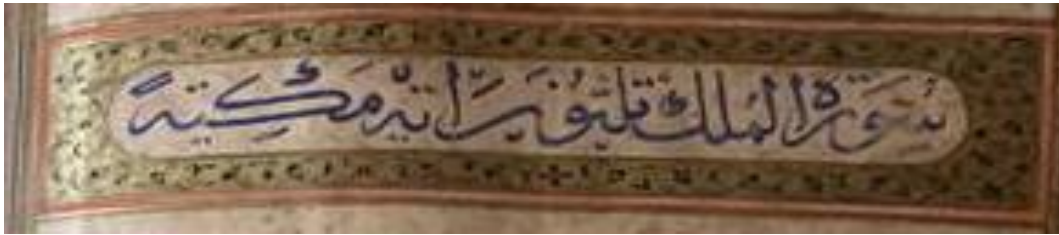 سُورَةُ الْمُلْكِ ثَلٰثُونَ اٰيَةً مَكِّيَّةٌ